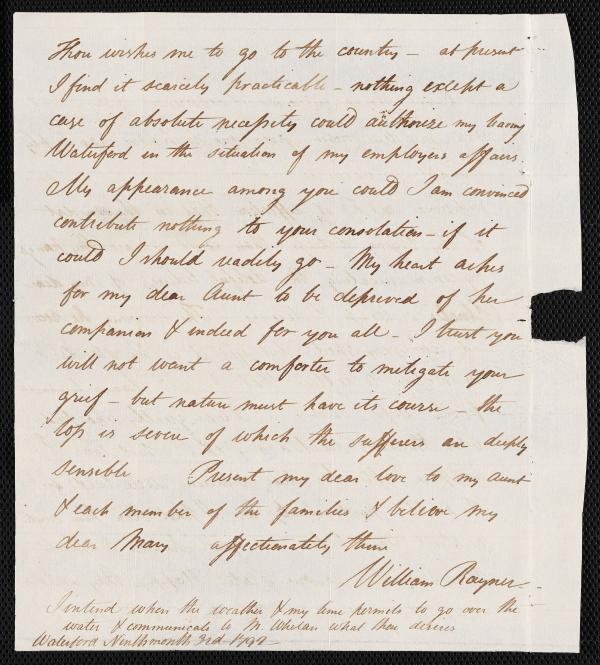 Thou wishes me to go to the country – at present
I find it scarcely practicable – nothing except a
case of absolute necessity could authorize my leaving
Waterford in the situation of my employers affairs.
My appearance among you could I am convinced
contribute nothing to your consolation – if it
could I should readily go – My heart aches
for my dear Aunt to be deprived of her
companion & indeed for you all – I trust you
will not want a comforter to mitigate your
grief – but nature must have its course – the
loss is severe of which the sufferers are deeply
sensible Present my dear love to my aunt
& each member of the families & believe my
dear Mary affectionately thine
William Rayner –
I intend when the weather & my time permits to go over the
water & communicate to M. Whelan what thou desires
Waterford Ninthmonth 3rd